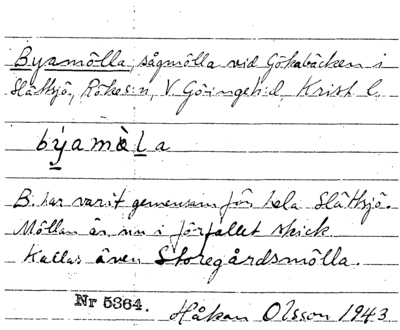 Byamölla, sågmölla vid Gökabäcken i
Slättsjö, Rökes:n, V Göingeh:d, Krist l.
býamòla
B. har varit gemensam för hela Slättsjö.
Möllan är nu i förfallet skick
Kallas även Storegårdsmölla.
Nr 5364. Håkan Olsson 1943